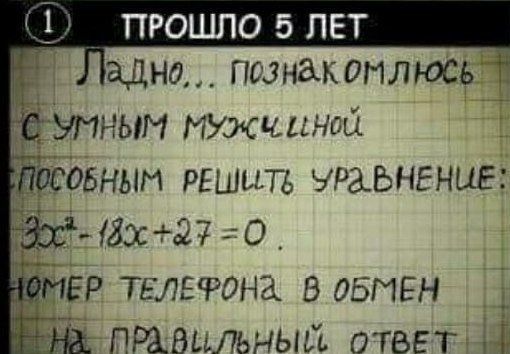 1 ПРОШЛО 5 ЛЕТ
Ладно... познакомлюсь
с умным мужчиной
способным решить уравнение:
3x²-18x+27=0.
номер телефона в обмен
на правильный ответ